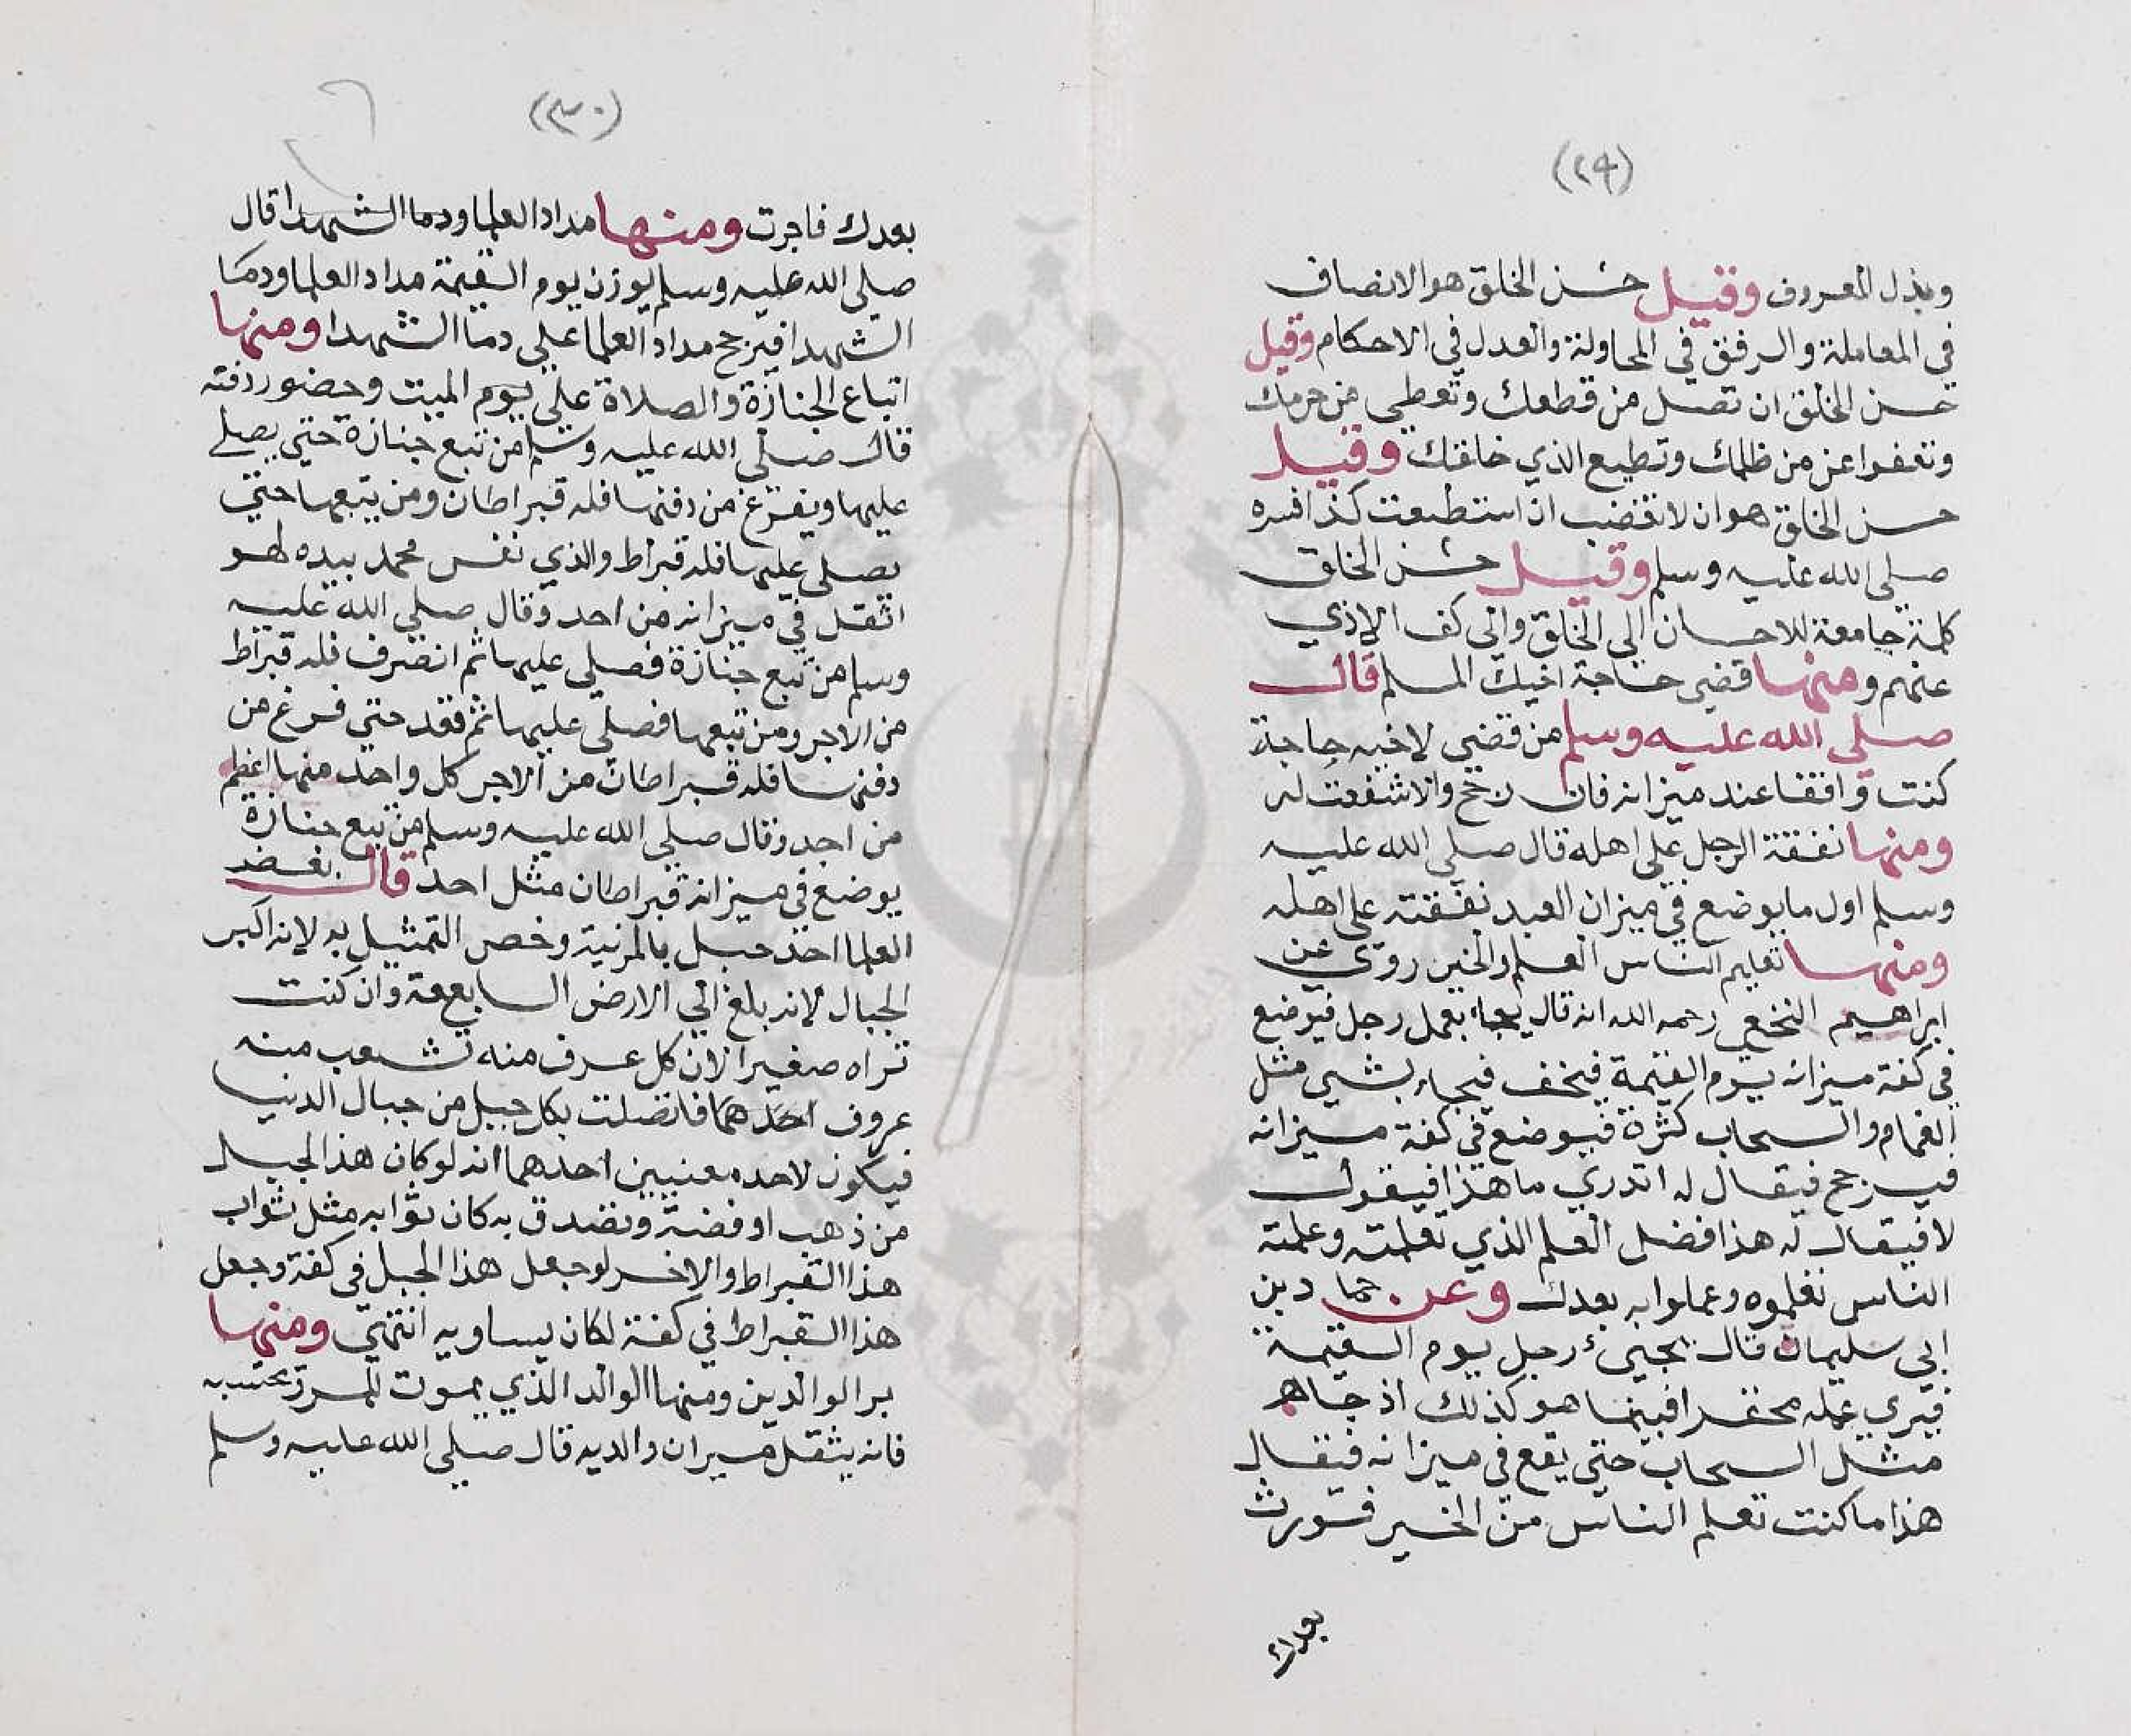 (٢٩)
وبذل المعروف وقيل حسن الخلق هو الانصاف
في المعاملة والرفق في المحاولة والعدل في الاحكام وقيل
حسن الخلق ان تصل من قطعك وتعطي من حرمك
وتعفوا عن من ظلمك وتطيع الذي خلقك وقيل
حسن الخلق هو ان لا تغضب ان استطعت كذا فسره
صلي الله عليه وسلم وقيل حسن الخلق
كلمة جامعة للاحسان الي الخلق والي كف الاذي
عنهم ومنها قضي حاجة اخيك المسلم قال
صلي الله عليه وسلم من قضي لاخيه حاجة
كنت واقفا عند ميزانه فان رجح والا شفعت له
ومنها نفقة الرجل علي اهله قال صلي الله عليه
وسلم اول ما يوضع في ميزان العبد نفقته علي اهله
ومنها تعليم الناس العلم والخير روي عن
ابراهيم النخعي رحمه الله انه قال يجاء بعمل رجل فيوضع
في كفة ميزانه يوم القيمة فيخف فيجاء بشيي مثل
الغمام والسحاب كثرة فيوضع في كفة ميزانه
فيرجح فيقال له اتدري ما هذا فيقول
لا فيقال له هذا فضل العلم الذي تعلمته وعلمته
الناس تعلموه وعملوا به بعدك وعن حما دبن
ابي سليمان قال يجيئ رجل يوم القيمة
فيري عمله محتقرا فبينما هو كذلك اذ جاه
مثل السحاب حتي يقع في ميزانه فيقال
هذا ما كنت تعلم الناس من الخير فتورث
بعدك
(٣٠)
بعدك فاجرت ومنها مداد العلما ودما الشهدا قال
صلي الله عليه وسلم يوزن يوم القيمة مداد العلما ودما
الشهدا فيرجح مداد العلما علي دما الشهدا ومنها
اتباع الجنازة والصلاة علي يوم الميت وحضور دفنه
قال صلي الله عليه وسلم من تبع جنازة حتي يصلي
عليها ويفرغ من دفنها فله قيراطان ومن يتبعها حتي
يصلي عليها فله قيراط والذي نفس محمد بيده لهو
اثقل في ميزانه من احد وقال صلي الله عليه
وسلم من تبع جنازة فصلي عليها ثم انصرف فله قيراط
من الاجر ومن تبعها فصلي عليها ثم قعد حتي فرغ من
دفنها فله قيراطان من الاجر كل واحد منها اعظم
من احد وقال صلي الله عليه وسلم من تبع جنازة
يوضع في ميزانه قيراطان مثل احد قال بعض
العلما احد جبل بالمدينة وخص التمثيل به لانه اكبر
الجبال لانه بلغ الي الارض السابععة وان كنت
تراه صغيرا لان كل عرف منه تشعب منه
عروف احدهما فاتصلت بكل جبل من جبال الدنيا
فيكون لاحده معنيين احدهما انه لو كان هذا الجبل
من ذهب او فضة وتصدق به كان ثوابه مثل ثواب
هذا القيراط والاخر لو جعل هذا الجبل في كفة وجعل
هذا القيراط في كفة لكان يساويه انتهي ومنها
بر الوالدين ومنها الوالد الذي يموت للمرء يحتسبه
فانه يثقل ميزان والديه قال صلي الله عليه وسلم